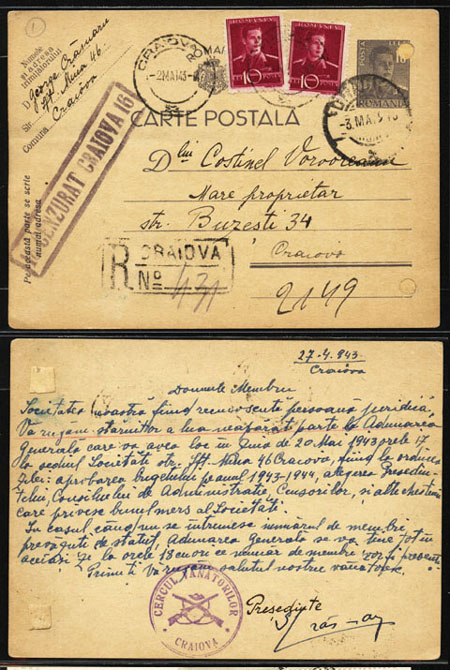 1
Numele
și adresa
trimițătorului
D. George
Sft. Mina 46
Str. Craiova
Comuna
Pe această parte se scrie
numai adresa
CENZURAT CRAIOVA 16
CRAIOVA
-2MAI43-
ROMANIA
POSTA
10 LEI
ROMANIA
POSTA
10 LEI
POSTA
ROMANIA
-3.MAI.
CARTE POSTALA
Dlui Costinel Vorvoreanu
Mare proprietar
str. Buzesti 34
Craiova
2149
R CRAIOVA
No 431
27-4.943
Craiova
Domnule Membru
Societatea noastră fiind recunoscută persoană juridică,
Vă rugăm stăruitor a lua neapărat parte la Adunarea
Generală care va avea loc în Ziua de 20 Mai 1943 orele 17
la sediul Societatii str. Sft. Mina 46 Craiova, fiind la ordinea
zilei: aprobarea bugetului pe anul 1943-1944, alegerea Presedin-
telui, Consiliului de Administratie, Cenzorilor, și alte chestiuni
care privesc bunul mers al Societatii.
In cazul când nu se întrunesc numărul de membri
prevăzuti de statut, Adunarea Generală se va tine tot în
aceiasi zi la orele 18 cu ori ce număr de membre vor fi prezenti.
Primiti Vă rugăm salutul nostru vânătoresc.
CERCUL VANATORILOR
CRAIOVA
Presedinte